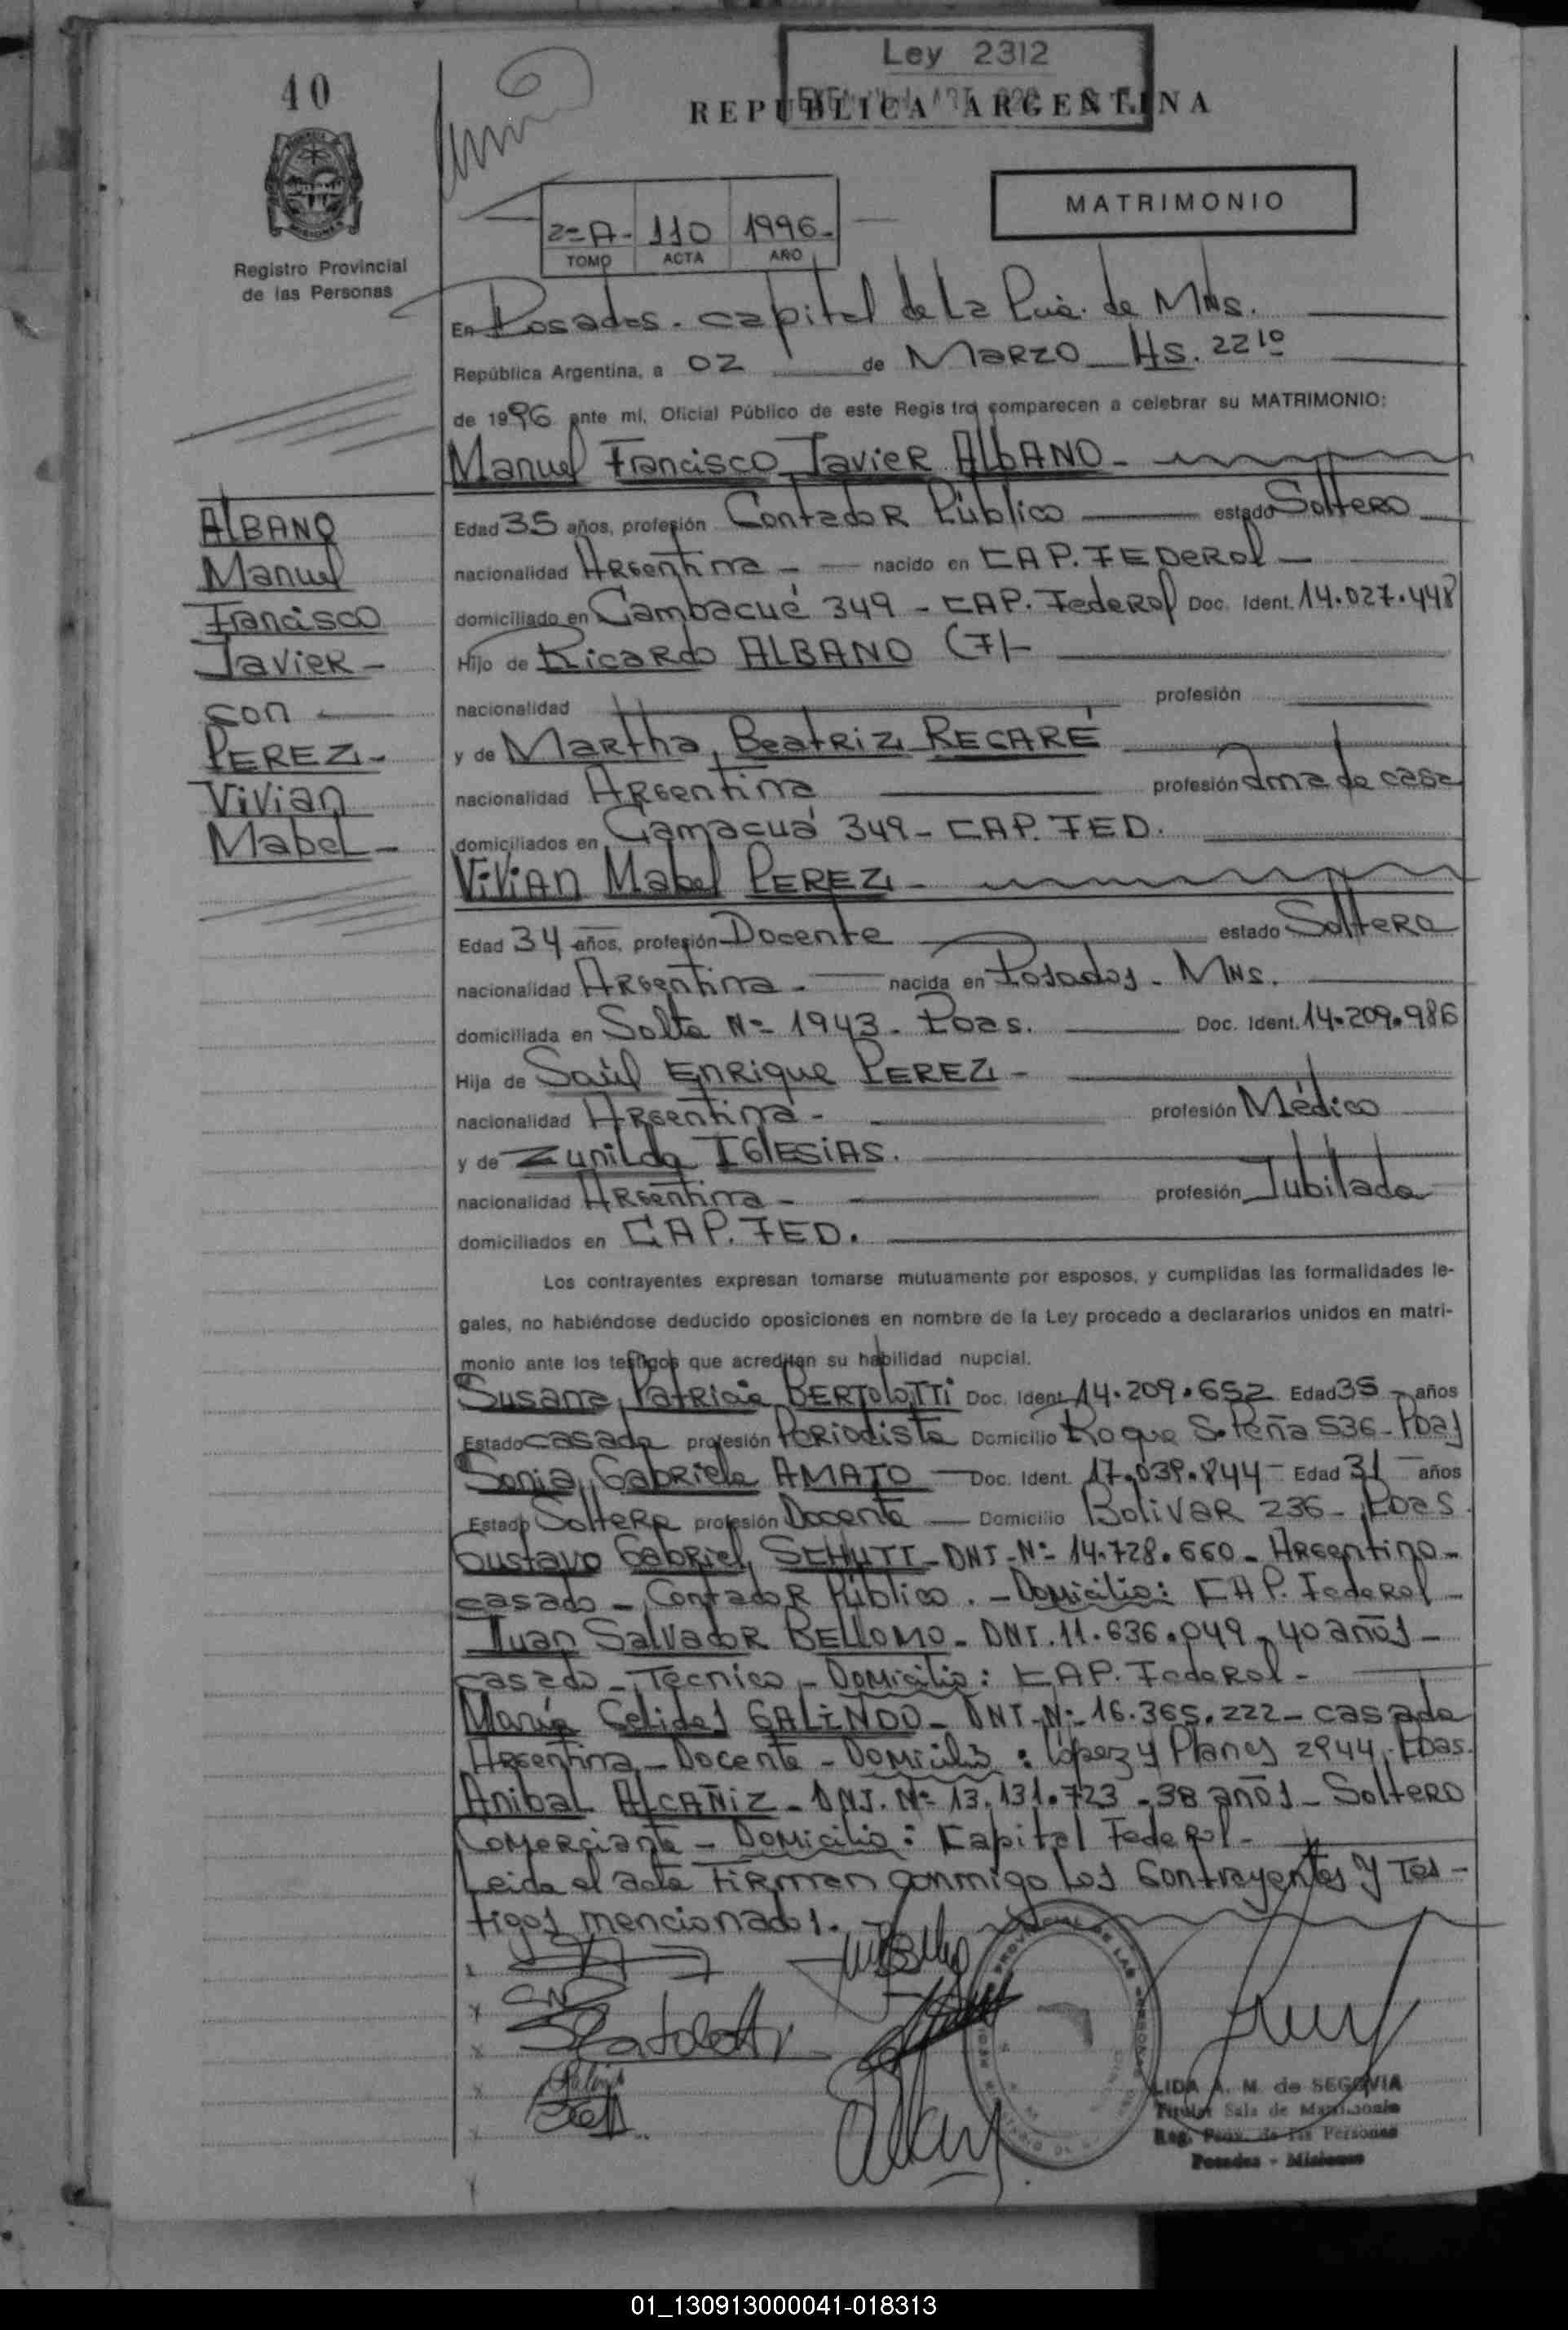 10
Ley 2312
REPUBLICA ARGENTINA
MISIONES
Registro Provincial
de las Personas
MATRIMONIO
2ºA- 110 1996-
TOMO ACTA AÑO
En Posadas. capital de La de Mns.
República Argentina, a 02 de Marzo Hs. 22 10
de 1996 ante mi, Oficial Público de este Registro comparecen a celebrar su MATRIMONIO:
Manuel Francisco Javier ALBANO-
ALBANO
Manuel
Francisco
Javier-
con
PEREZ-
Vivian
Mabel-
Edad 35 años, profesión Contador Público estado Soltero
nacionalidad Argentina - nacido en CAP. FEDERal -
domiciliado en Cambacué 349 - CAP. Federal Doc. Ident. 14.027.448
Hijo de Ricardo ALBANO (7)-
nacionalidad profesión
y de Martha Beatriz RECARÉ
nacionalidad Argentina profesión ama de casa
domiciliados en Camacuá 349- CAP. FED.
Vivian Mabel PEREZ-
Edad 34 años, profesión Docente estado Soltera
nacionalidad Argentina - nacida en Posadas - Mns.
domiciliada en Salta Nº 1943- Pdas. Doc. Ident. 14.209.986
Hija de Saúl Enrique PEREZ -
nacionalidad Argentina - profesión Médico
y de Zunilda IGLESIAS.
nacionalidad Argentina - profesión Jubilada
domiciliados en CAP. FED.
Los contrayentes expresan tomarse mutuamente por esposos, y cumplidas las formalidades le-
gales, no habiéndose deducido oposiciones en nombre de la Ley procedo a declararlos unidos en matri-
monio ante los testigos que acreditan su habilidad nupcial.
Susana Patricia BERTOLOTTI Doc. Ident. 14.209.652 Edad 35 - años
Estado casada profesión Periodista Domicilio Roque S. Peña 536- Pdas
Sonia Gabriela AMATO - Doc. Ident. 17.039.844 - Edad 31 - años
Estado Soltera profesión Docente - Domicilio Bolivar 236- Pdas.
Gustavo Gabriel SCHUTT- DNI-Nº 14.728.660- Argentino-
casado - Contador Público. - Domicilio: CAP. Federal -
Juan Salvador BELLOMO- DNI. 11.636.049 - 40 años -
casado - Técnico - Domicilio: CAP. Federal -
María Celides GALINDO- DNI-Nº 16.365.222- casada
Argentina - Docente - Domicilio: López y Planes 2944. Pdas.
Anibal ALCAÑIZ- DNI. Nº 13.131.723 - 38 años - Soltero
Comerciante - Domicilio: Capital Federal -
Leida el acta Firman conmigo los Contrayentes y Tes-
tigos mencionados.
LIDA A. M. de SEGOVIA
Titular Sala de Matrimonio
Reg. Prov. de las Personas
Posadas - Misiones
01_130913000041-018313